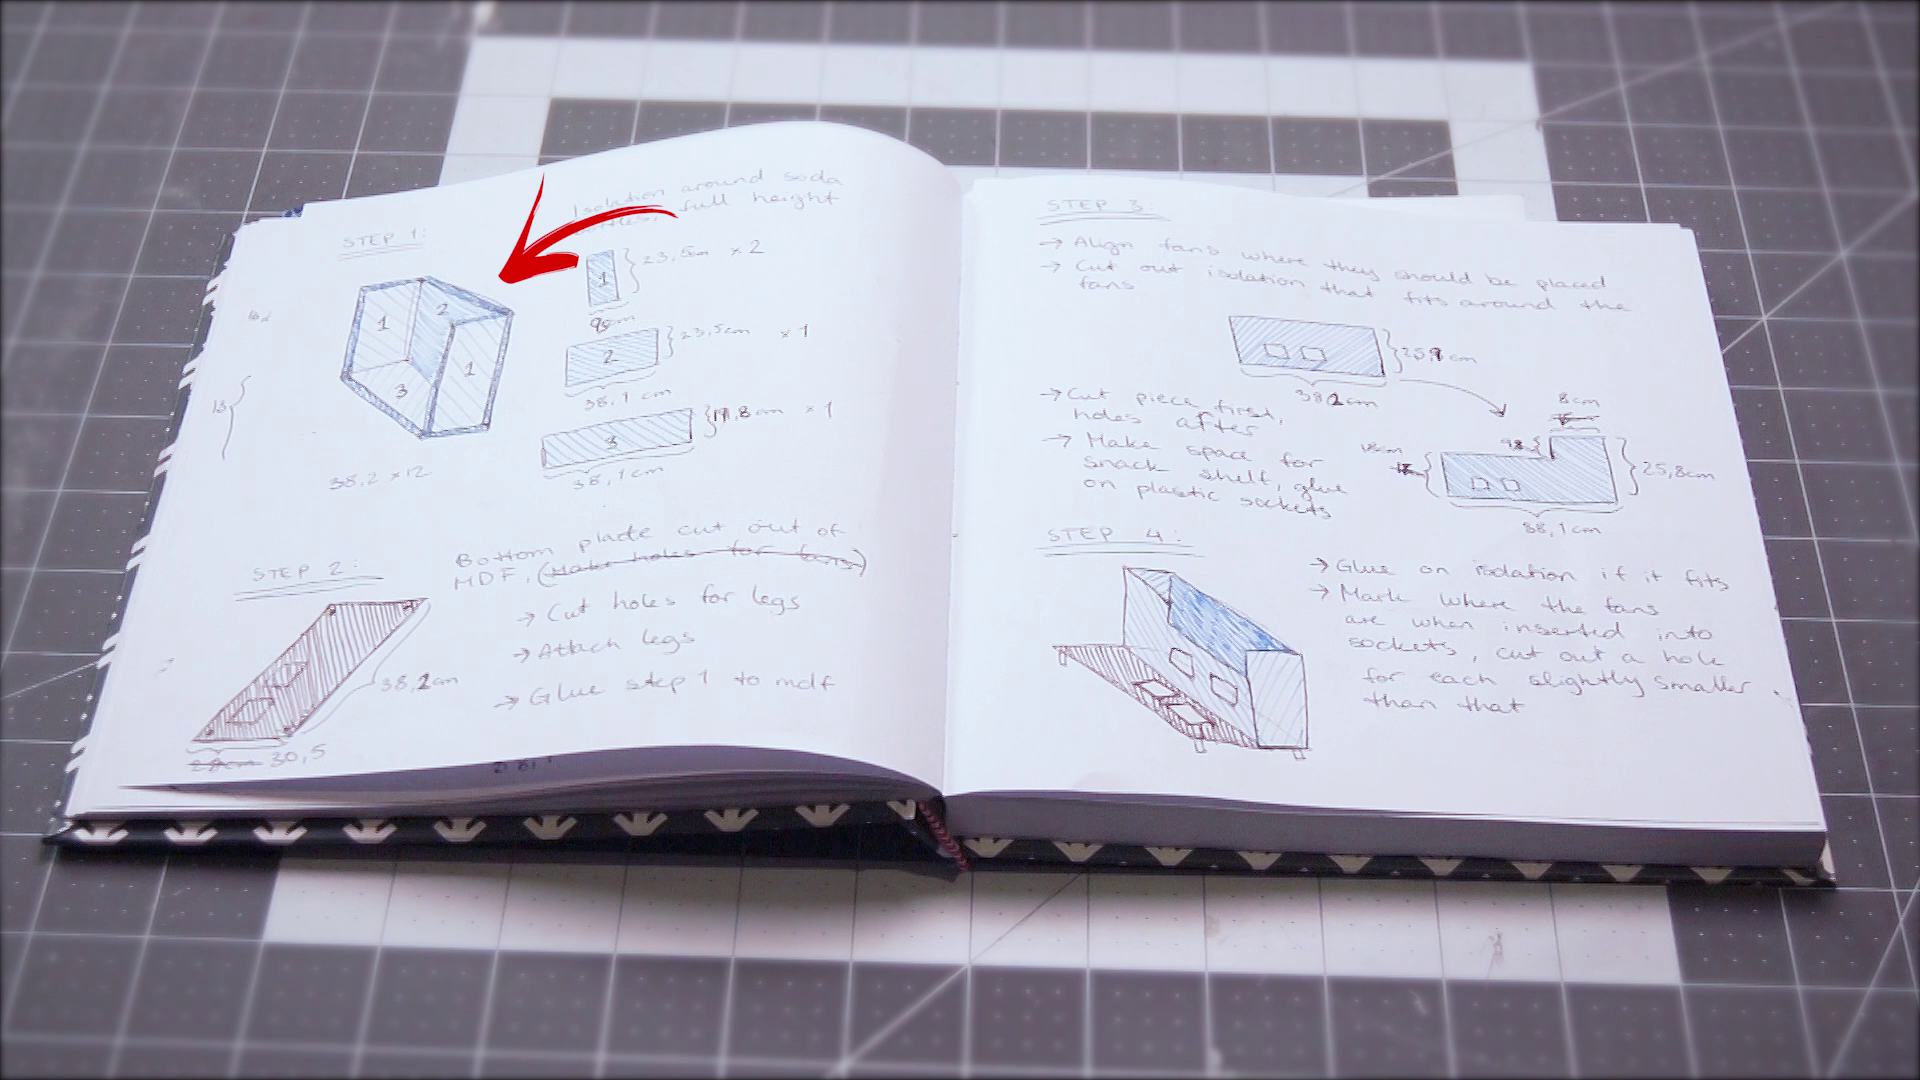 Isolation around soda
bottles, full height
STEP 1:
1
23,5cm x 2
9cm
1
2
1
3
2
23,5cm x 1
38,1 cm
3
11,8cm x 1
38,1 cm
13
38,2 x12
STEP 2:
Bottom plate cut out of
MDF, (Make holes for fans)
→ Cut holes for legs
→ Attach legs
→ Glue step 1 to mdf
38,2cm
28cm 30,5
STEP 3:
→ Align fans where they should be placed
→ Cut out isolation that fits around the
fans
cm
cm
→ Cut piece first,
holes after
→ Make space for
snack shelf, glue
on plastic sockets
8cm
25,8cm
38,1cm
STEP 4:
→ Glue on isolation if it fits
→ Mark where the fans
are when inserted into
sockets, cut out a hole
for each slightly smaller
than that